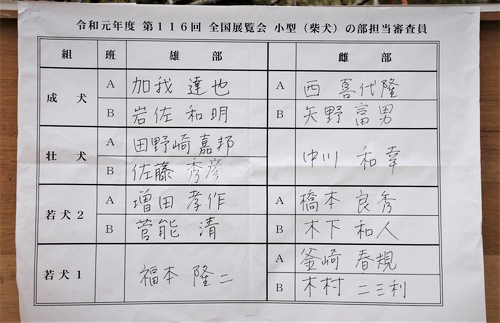 令和元年度 第116回 全国展覧会 小型(柴犬)の部担当審査員
組 班 雄部 雌部
成犬 A 加我 達也 A 西 喜代隆
B 岩佐 和明 B 矢野 富男
壮犬 A 田野崎 嘉邦 中川 和幸
B 佐藤 秀彦
若犬2 A 増田 孝作 A 橋本 良秀
B 菅能 清 B 木下 和人
若犬1 福本 隆二 A 釜崎 春規
B 木村 二三利